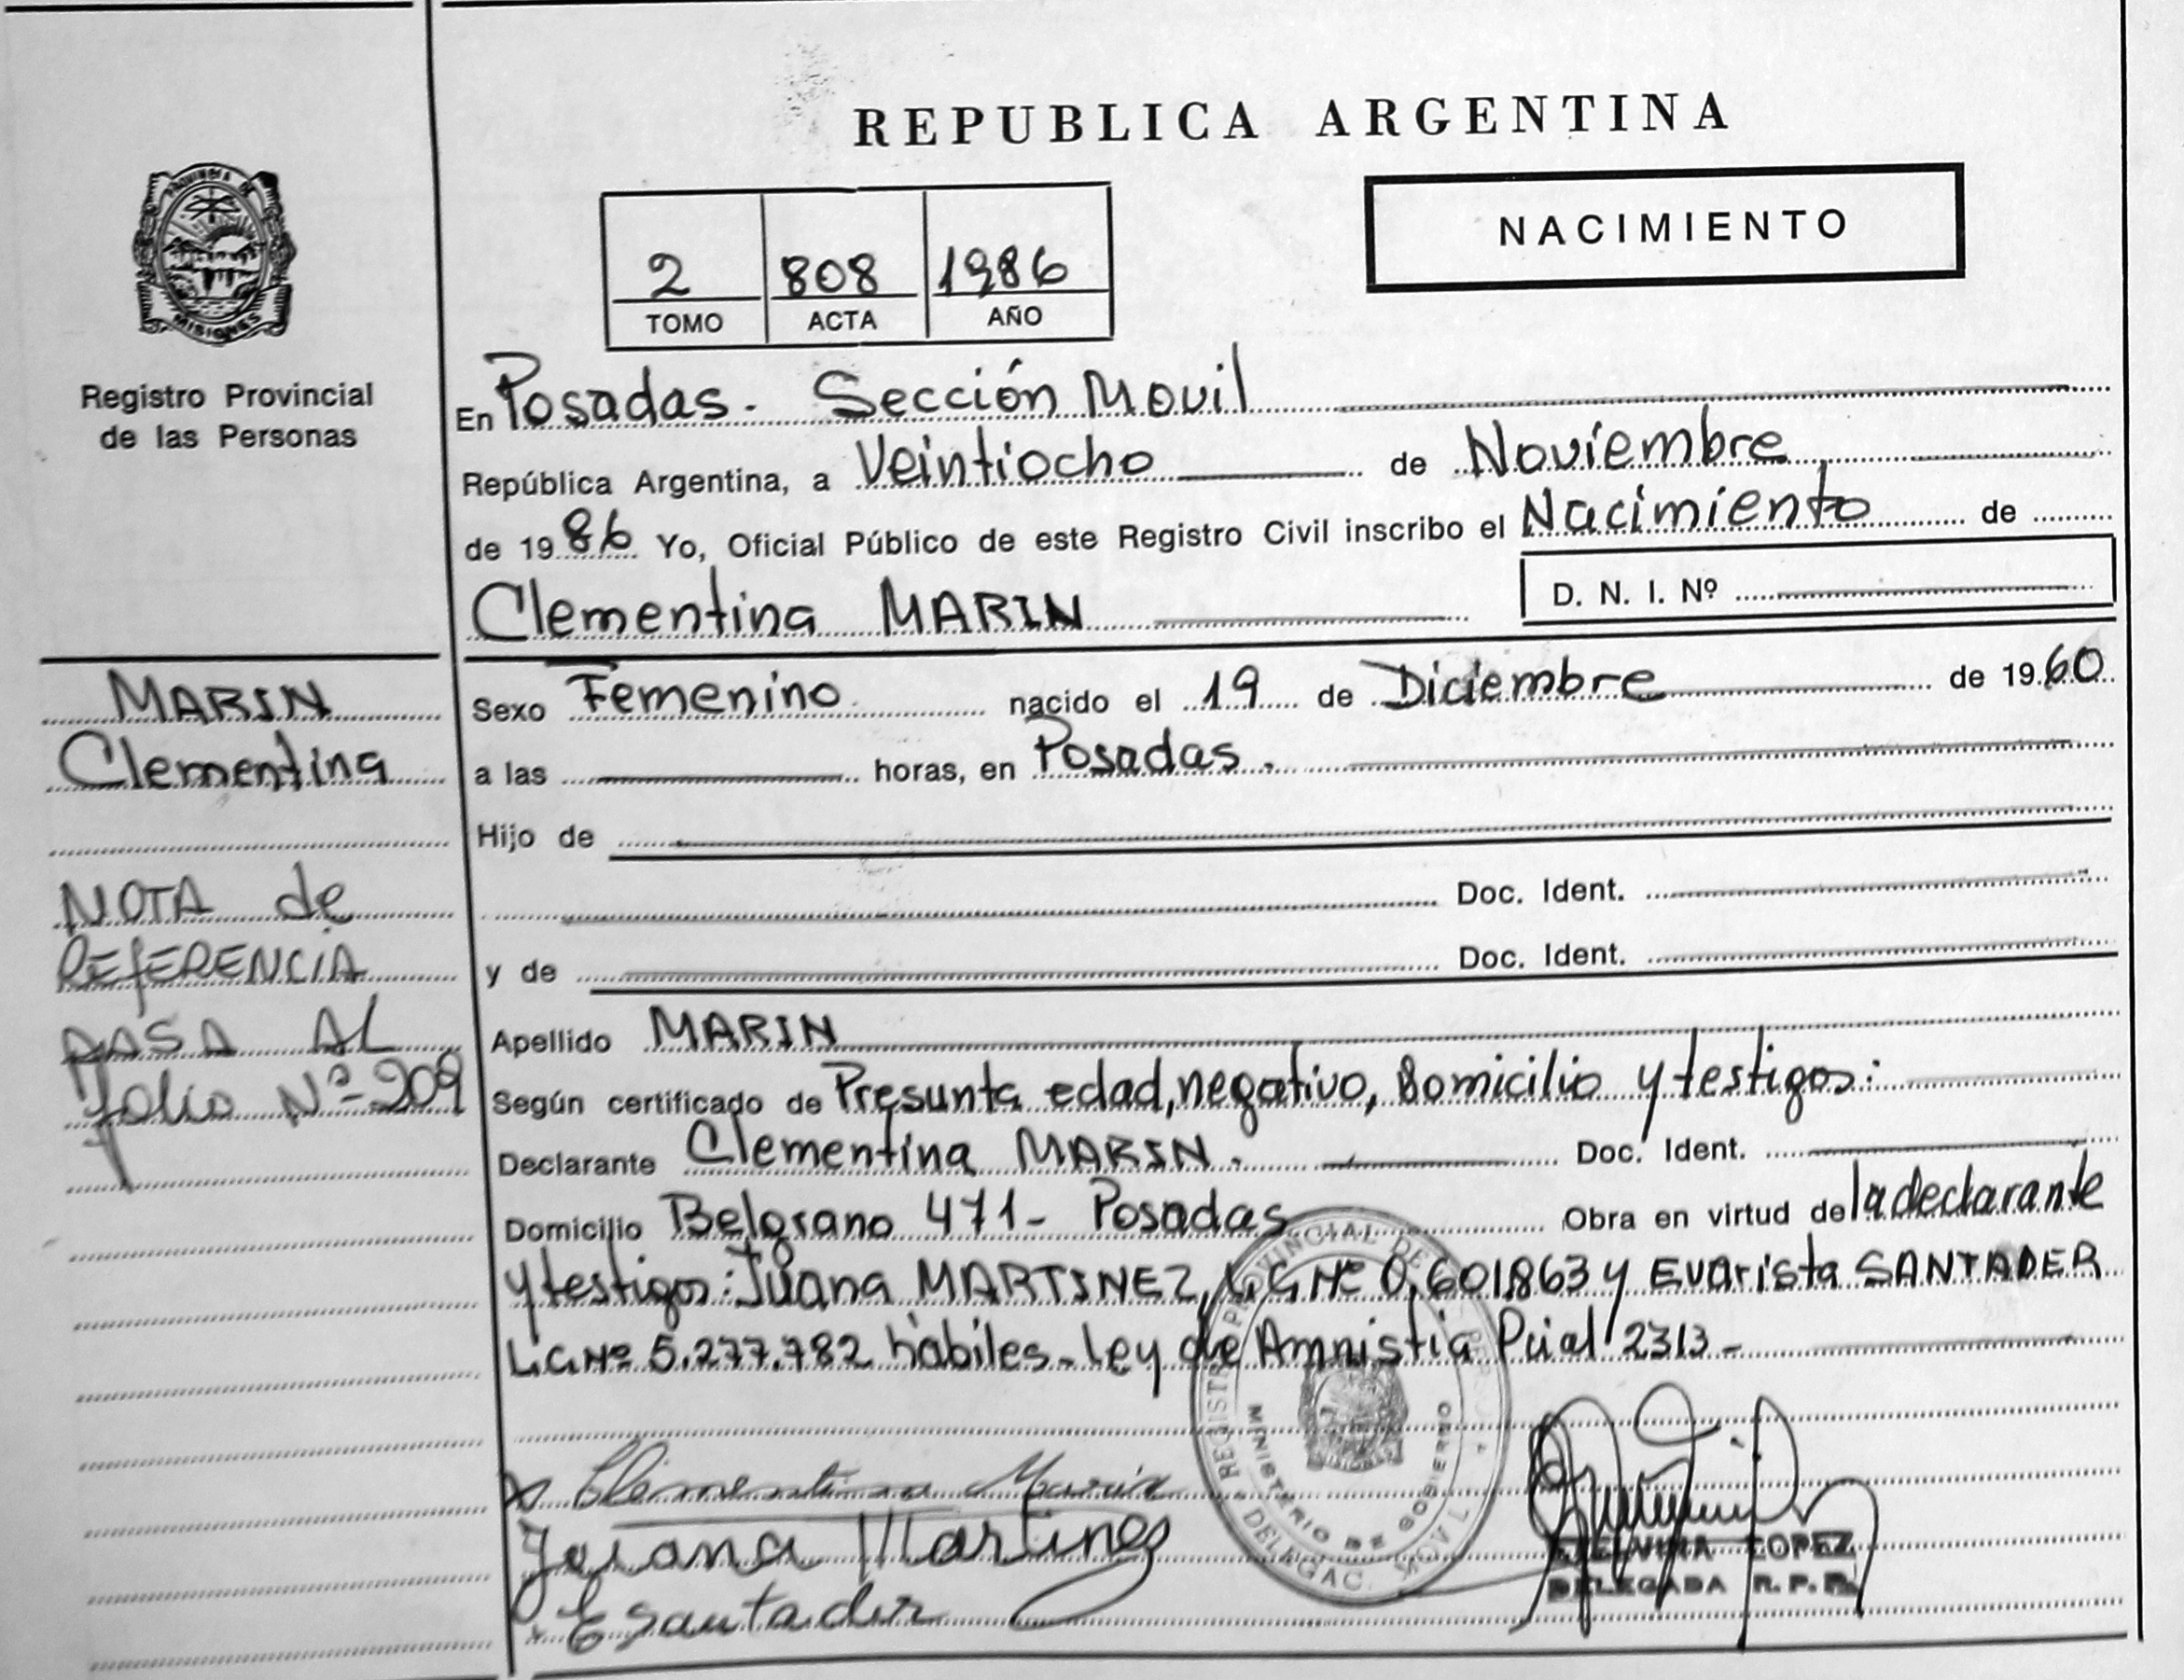 REPUBLICA ARGENTINA
NACIMIENTO
2 808 1986
TOMO ACTA AÑO
PROVINCIA DE
MISIONES
Registro Provincial
de las Personas
En Posadas. Sección Movil
República Argentina, a Veintiocho de Noviembre
de 1986 Yo, Oficial Público de este Registro Civil inscribo el Nacimiento de
Clementina MARIN
D. N. I. Nº
MARIN
Clementina
NOTA de
REFERENCIA
PASA AL
folio Nº-209
Sexo Femenino nacido el 19 de Diciembre de 1960
a las horas, en Posadas.
Hijo de
Doc. Ident.
y de Doc. Ident.
Apellido MARIN
Según certificado de Presunta edad, negativo, Domicilio y testigos:
Declarante Clementina MARIN. Doc. Ident.
Domicilio Belgrano 471- Posadas Obra en virtud de la declarante
y testigos: Juana MARTINEZ, L.C Nº 0.601.863 y Evarista SANTADER
L.C.Nº 5.277.782 hábiles. Ley de Amnistia Pcial 2313-
REGISTRO PROVINCIAL DE
MINISTERIO DE GOBIERNO
DELEGAC. MOVIL
Clementina Marin
Juana Martinez
E Santader
LOPEZ
DELEGADA R.P.P.